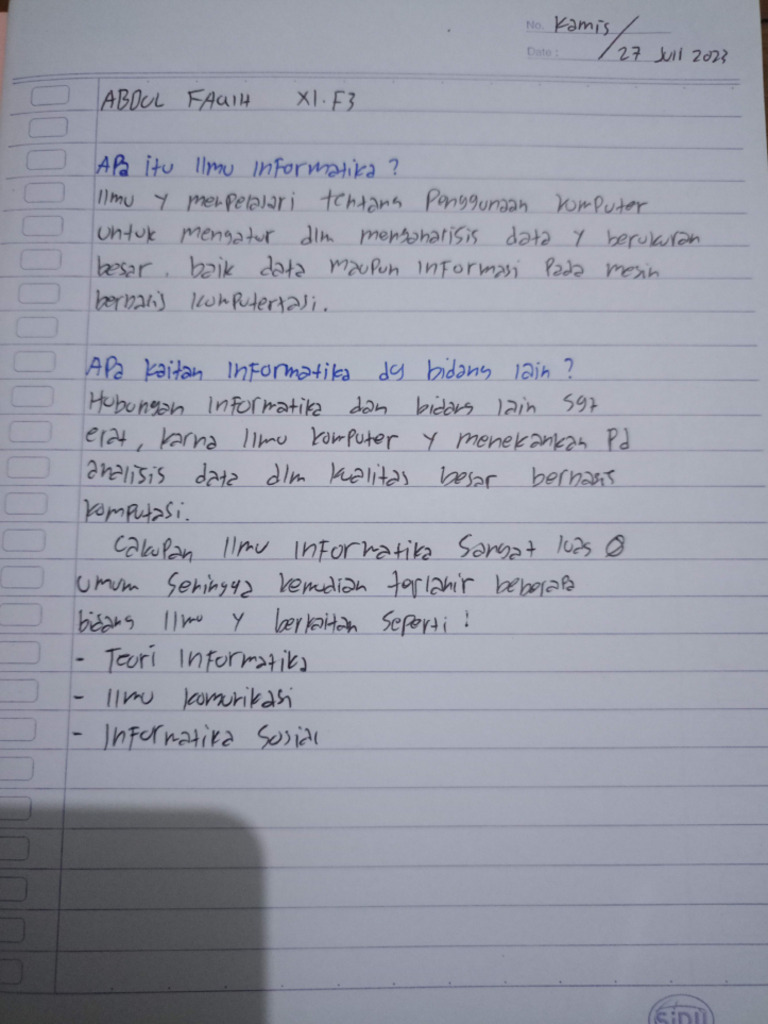 No. Kamis
Date: 27 Juli 2023
ABDUL FAQIH XI.F3
APa itu Ilmu InFormatika ?
Ilmu y mempelajari tentang Penggunaan komPuter
untuk mengatur dlm menganalisis data y berukuran
besar. baik data mauPun inFormasi Pada mesin
berbasis komputertasi.
APa kaitan InFormatika dg bidang lain ?
Hubungan InFormatika dan bidang lain sgt
erat, karna Ilmu komPuter y menekankan Pd
analisis data dlm kualitas besar berbasis
komPutasi.
CakuPan Ilmu InFormatika Sangat luas
umum Sehingga kemudian terlahir beberaPa
bidang Ilmu y berkaitan SePerti :
- Teori InFormatika
- Ilmu komunikasi
- InFormatika Sosial
SiDU